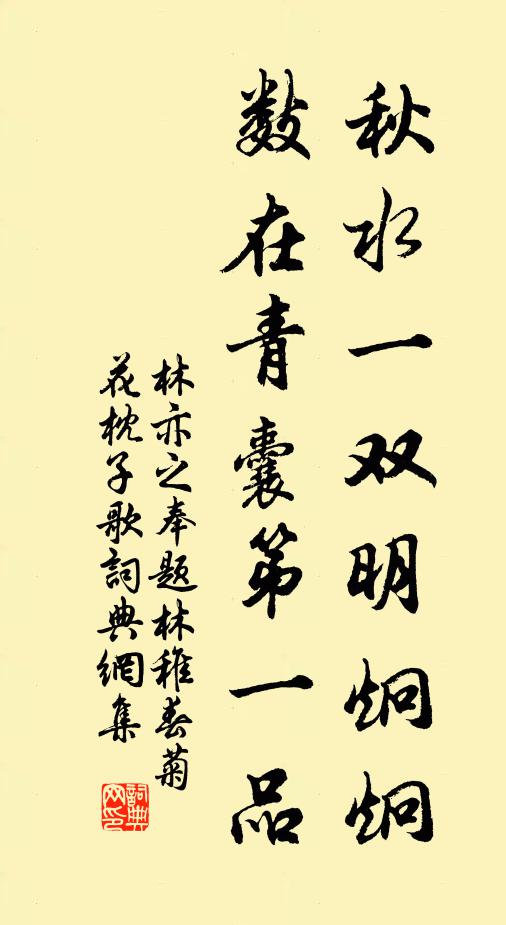 秋水一双明炯炯
数在青囊第一品
林亦之奉题林稚春菊
花枕子歌詞典網集
詞典网印